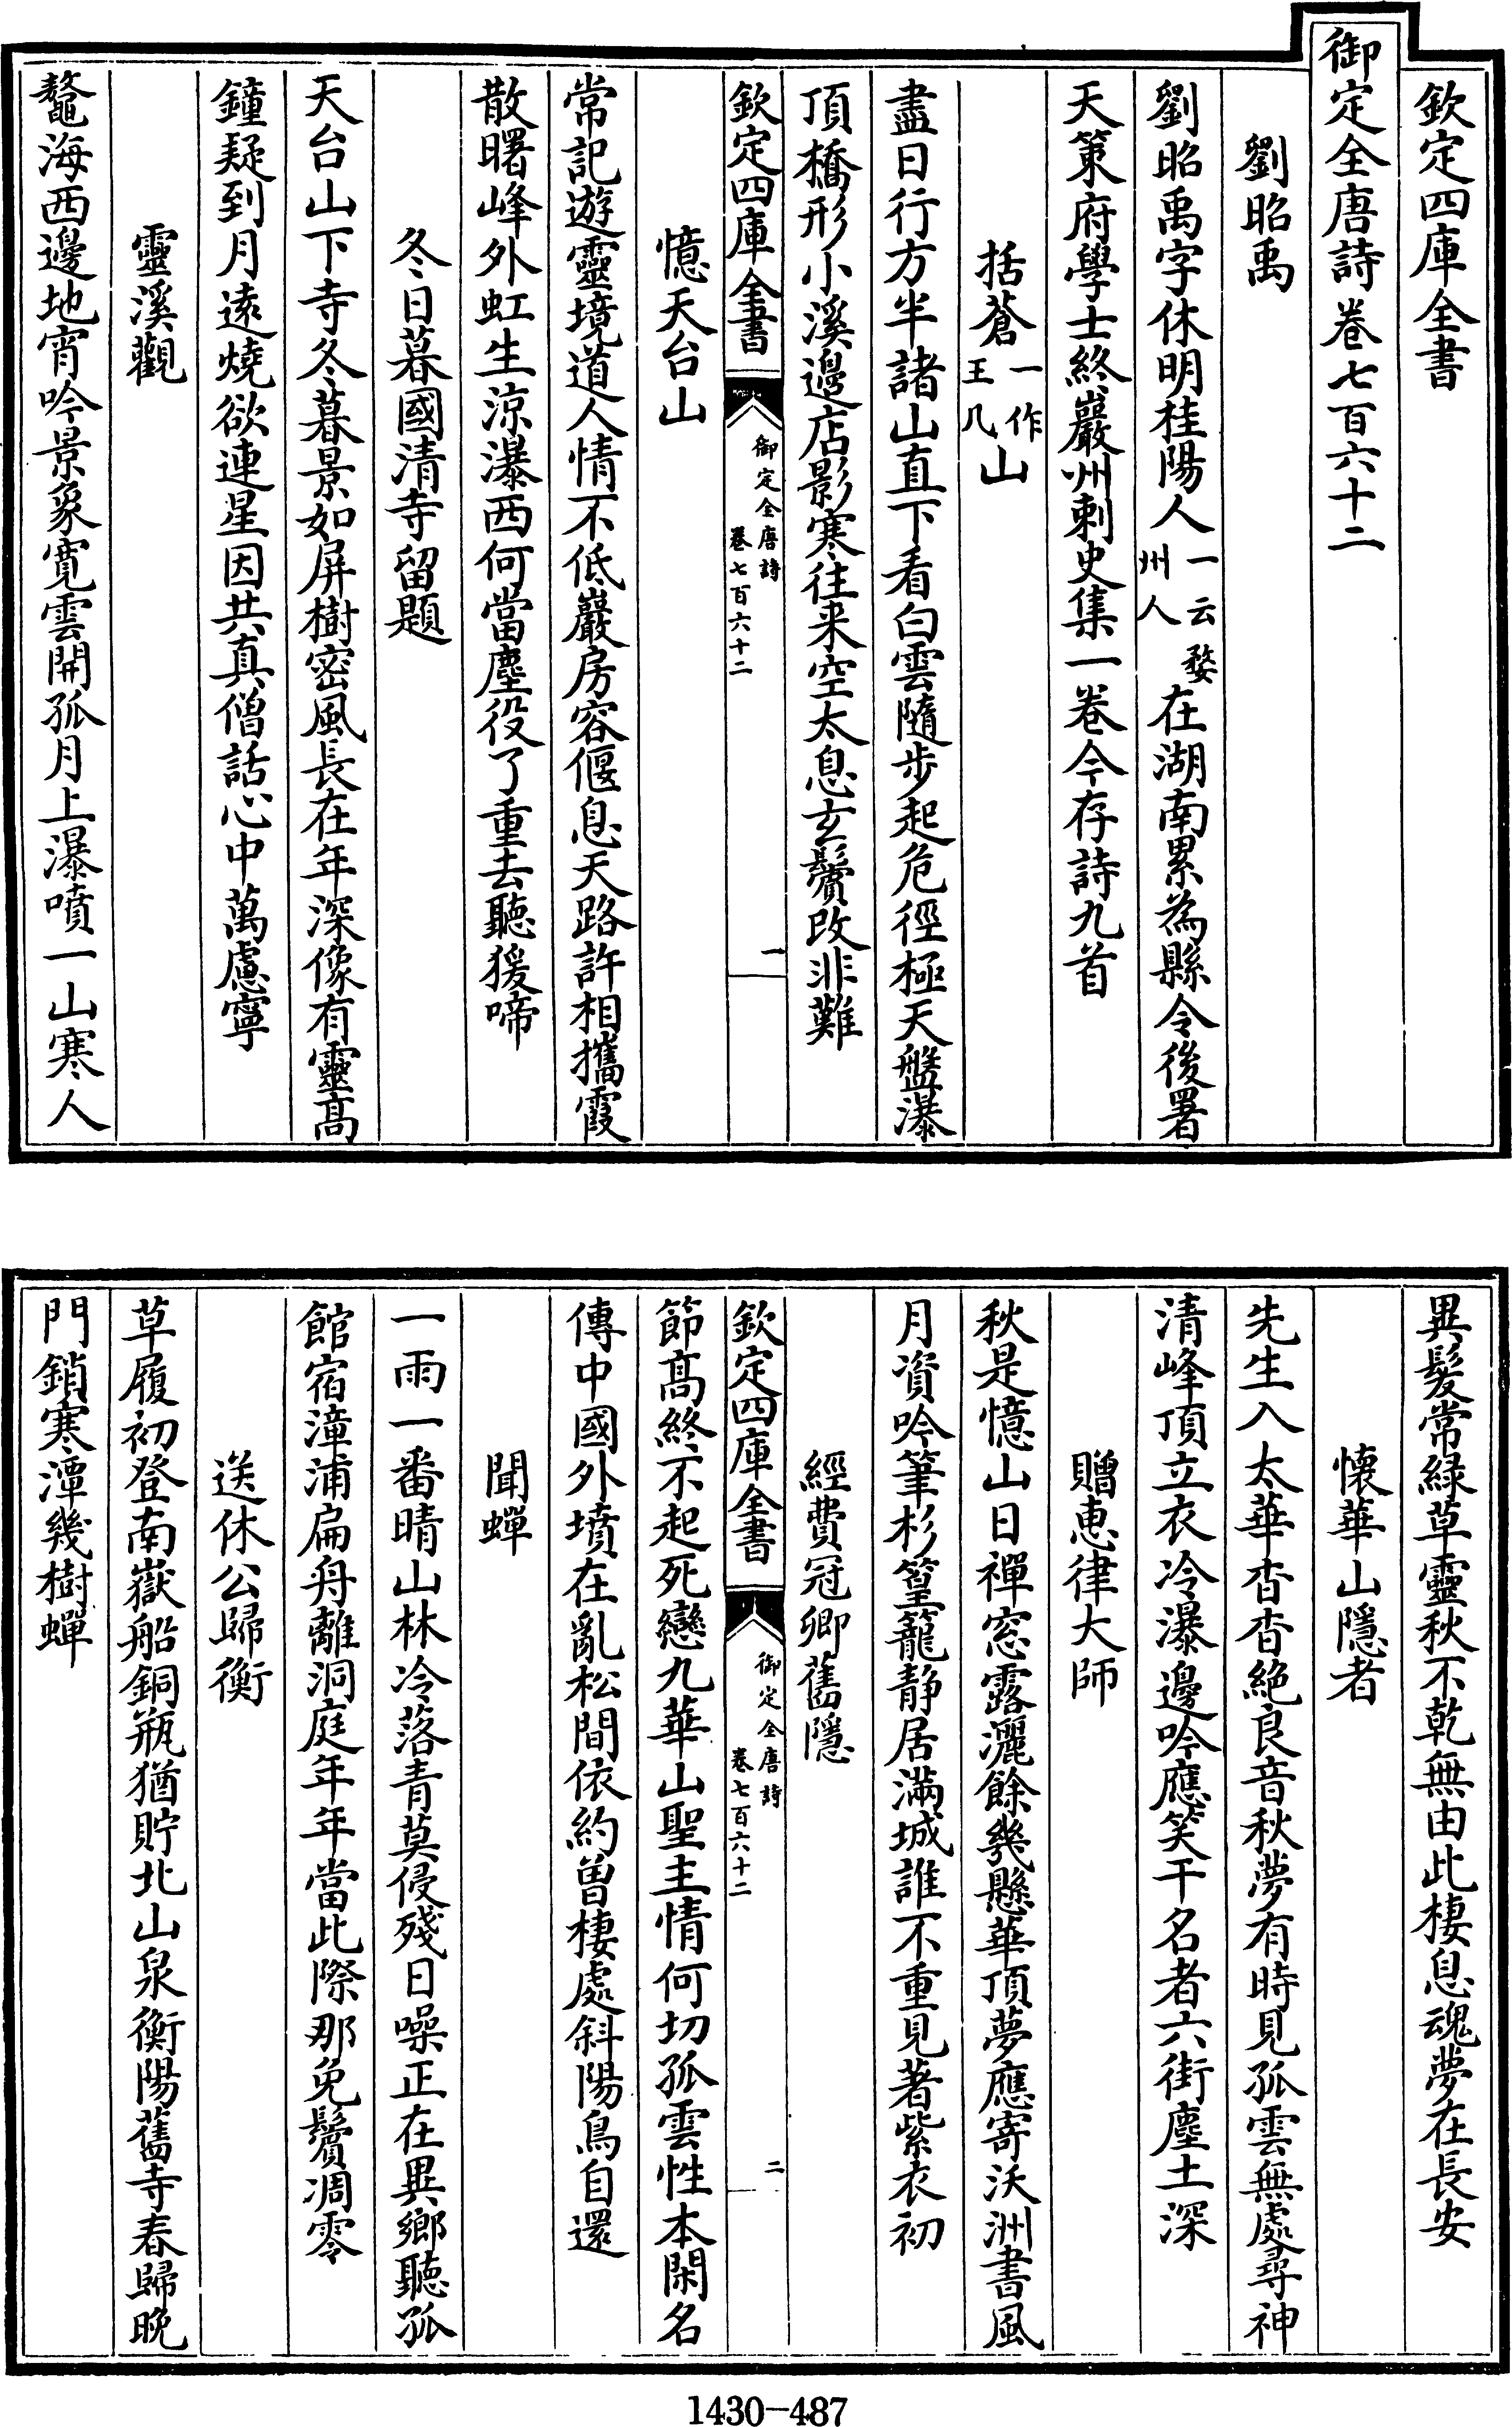 欽定四庫全書
御定全唐詩卷七百六十二
劉昭禹
劉昭禹字休明桂陽人一云婺州人在湖南累為縣令後署
天策府學士終巖州刺史集一卷今存詩九首
括蒼一作王几山
盡日行方半諸山直下看白雲隨步起危徑極天盤瀑
頂橋形小溪邊店影寒往来空太息玄鬢改非難
欽定四庫全書
御定全唐詩
卷七百六十二
一
憶天台山
常記遊靈境道人情不低巖房容偃息天路許相攜霞
散曙峰外虹生涼瀑西何當塵役了重去聽猨啼
冬日暮國清寺留題
天台山下寺冬暮景如屏樹密風長在年深像有靈髙
鐘疑到月遠燒欲連星因共真僧話心中萬慮寧
靈溪觀
鼇海西邊地宵吟景象寛雲開孤月上瀑噴一山寒人
異髪常緑草靈秋不乾無由此棲息魂夢在長安
懐華山隱者
先生入太華杳杳絶良音秋夢有時見孤雲無處尋神
清峰頂立衣冷瀑邊吟應笑干名者六街塵土深
贈惠律大師
秋是憶山日禪窓露灑餘幾懸華頂夢應寄沃洲書風
月資吟筆杉篁籠静居滿城誰不重見著紫衣初
經費冠卿舊隱
欽定四庫全書
御定全唐詩
卷七百六十二
二
節髙終不起死戀九華山聖主情何切孤雲性本閑名
傳中國外墳在亂松間依約曽棲處斜陽鳥自還
聞蟬
一雨一番晴山林冷落青莫侵殘日噪正在異鄉聽孤
館宿漳浦扁舟離洞庭年年當此際那免鬢凋零
送休公歸衡
草履初登南嶽船銅瓶猶貯北山泉衡陽舊寺春歸晚
門鎖寒潭幾樹蟬
1430-487